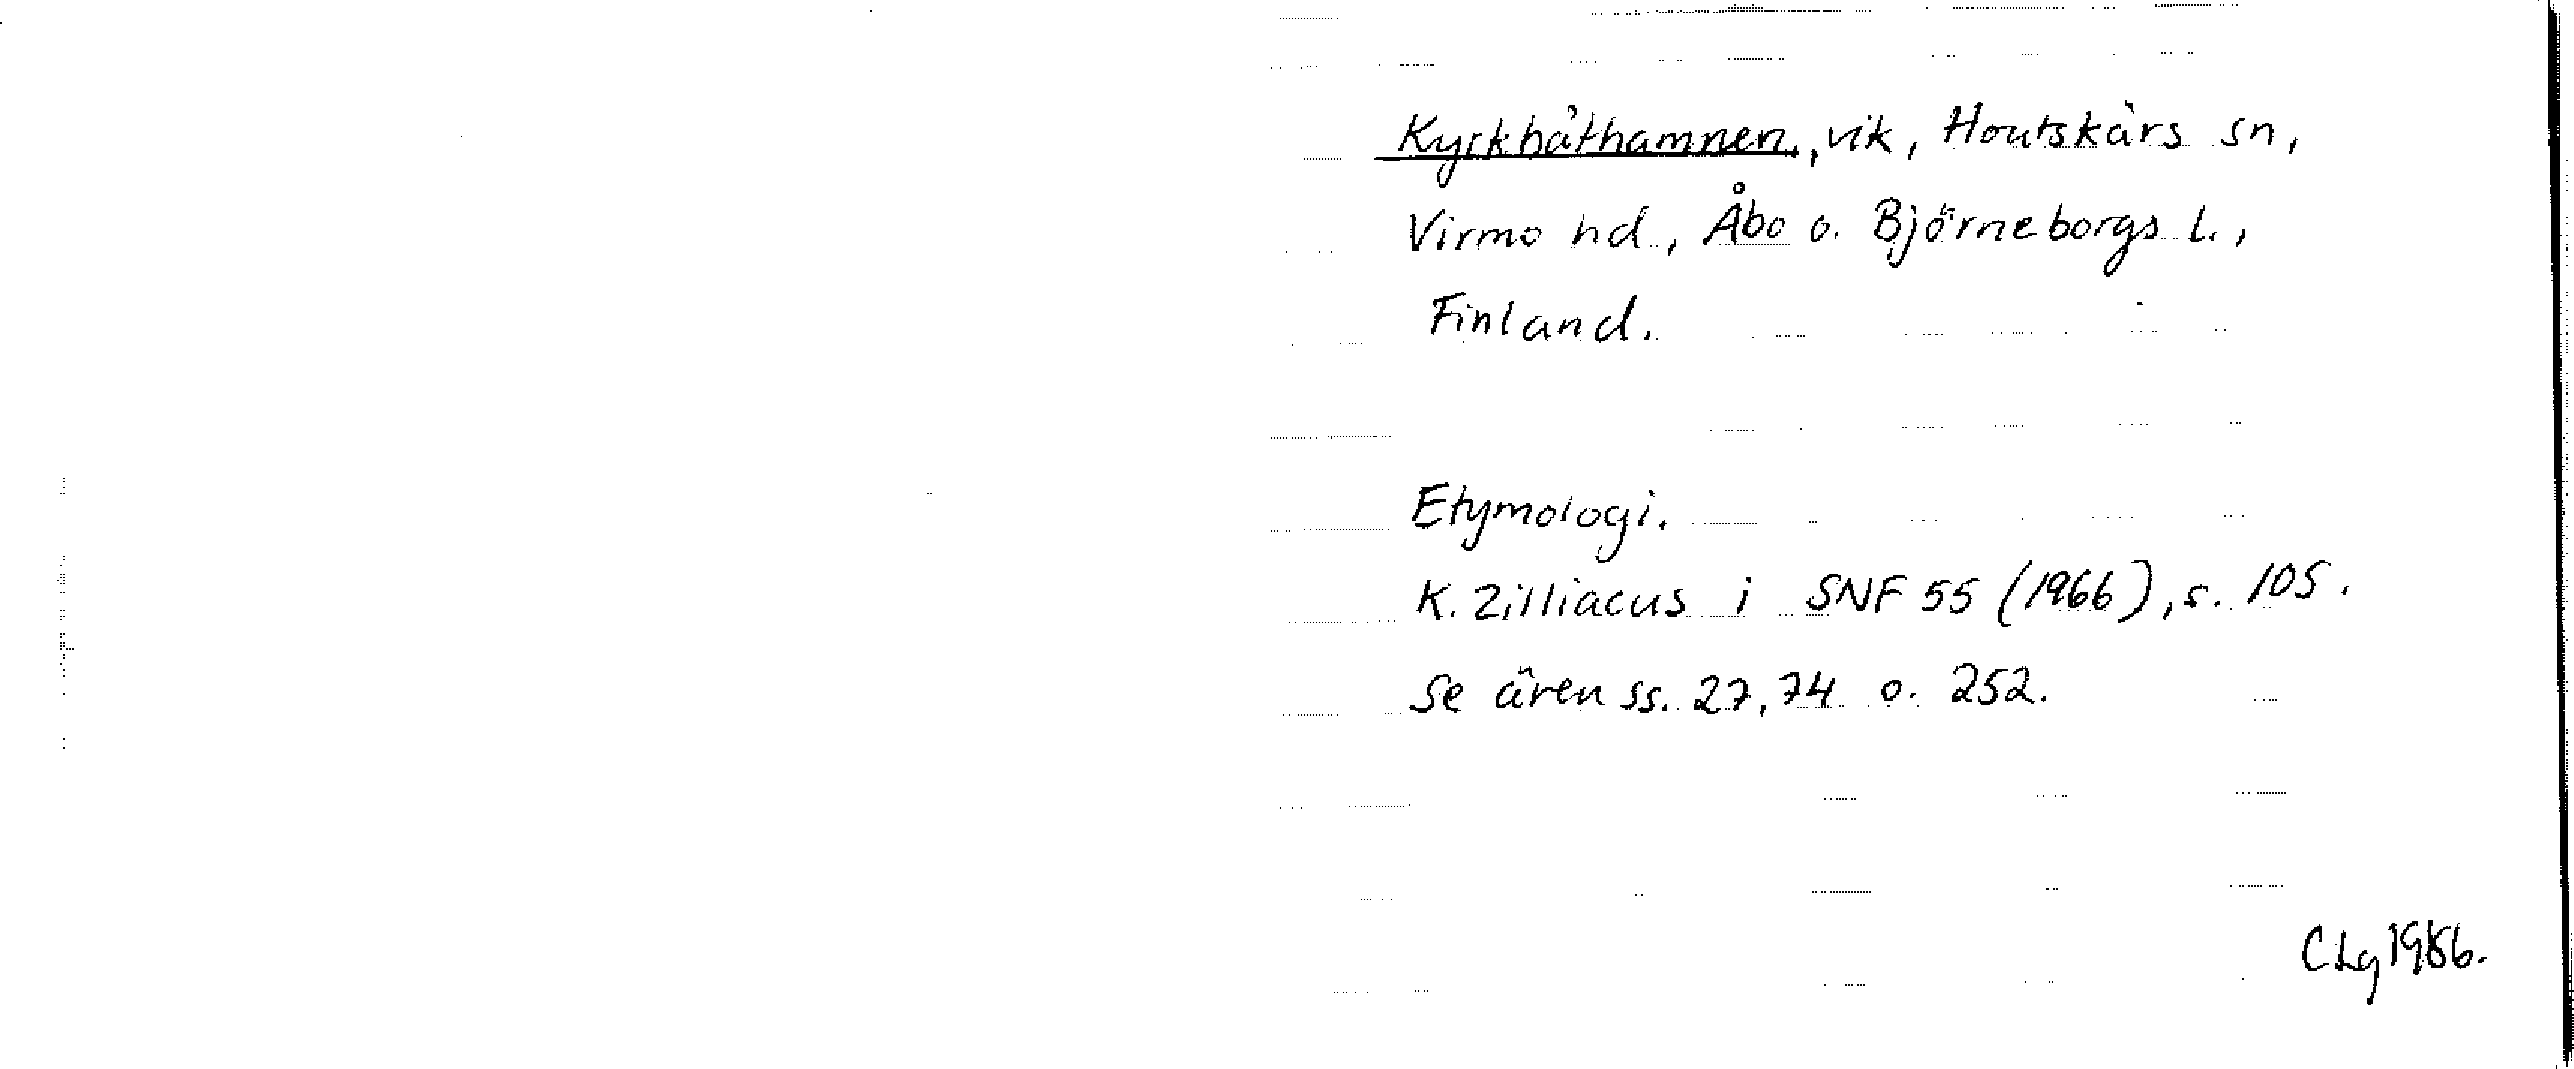 Kyrkbåthamnen, vik, Houtskärs sn,
Virmo hd., Åbo o. Björneborgs l.,
Finland.
Etymologi.
K. Zilliacus i SNF 55 (1966), s. 105.
Se även ss. 27, 74 o. 252.
CLg 1986.